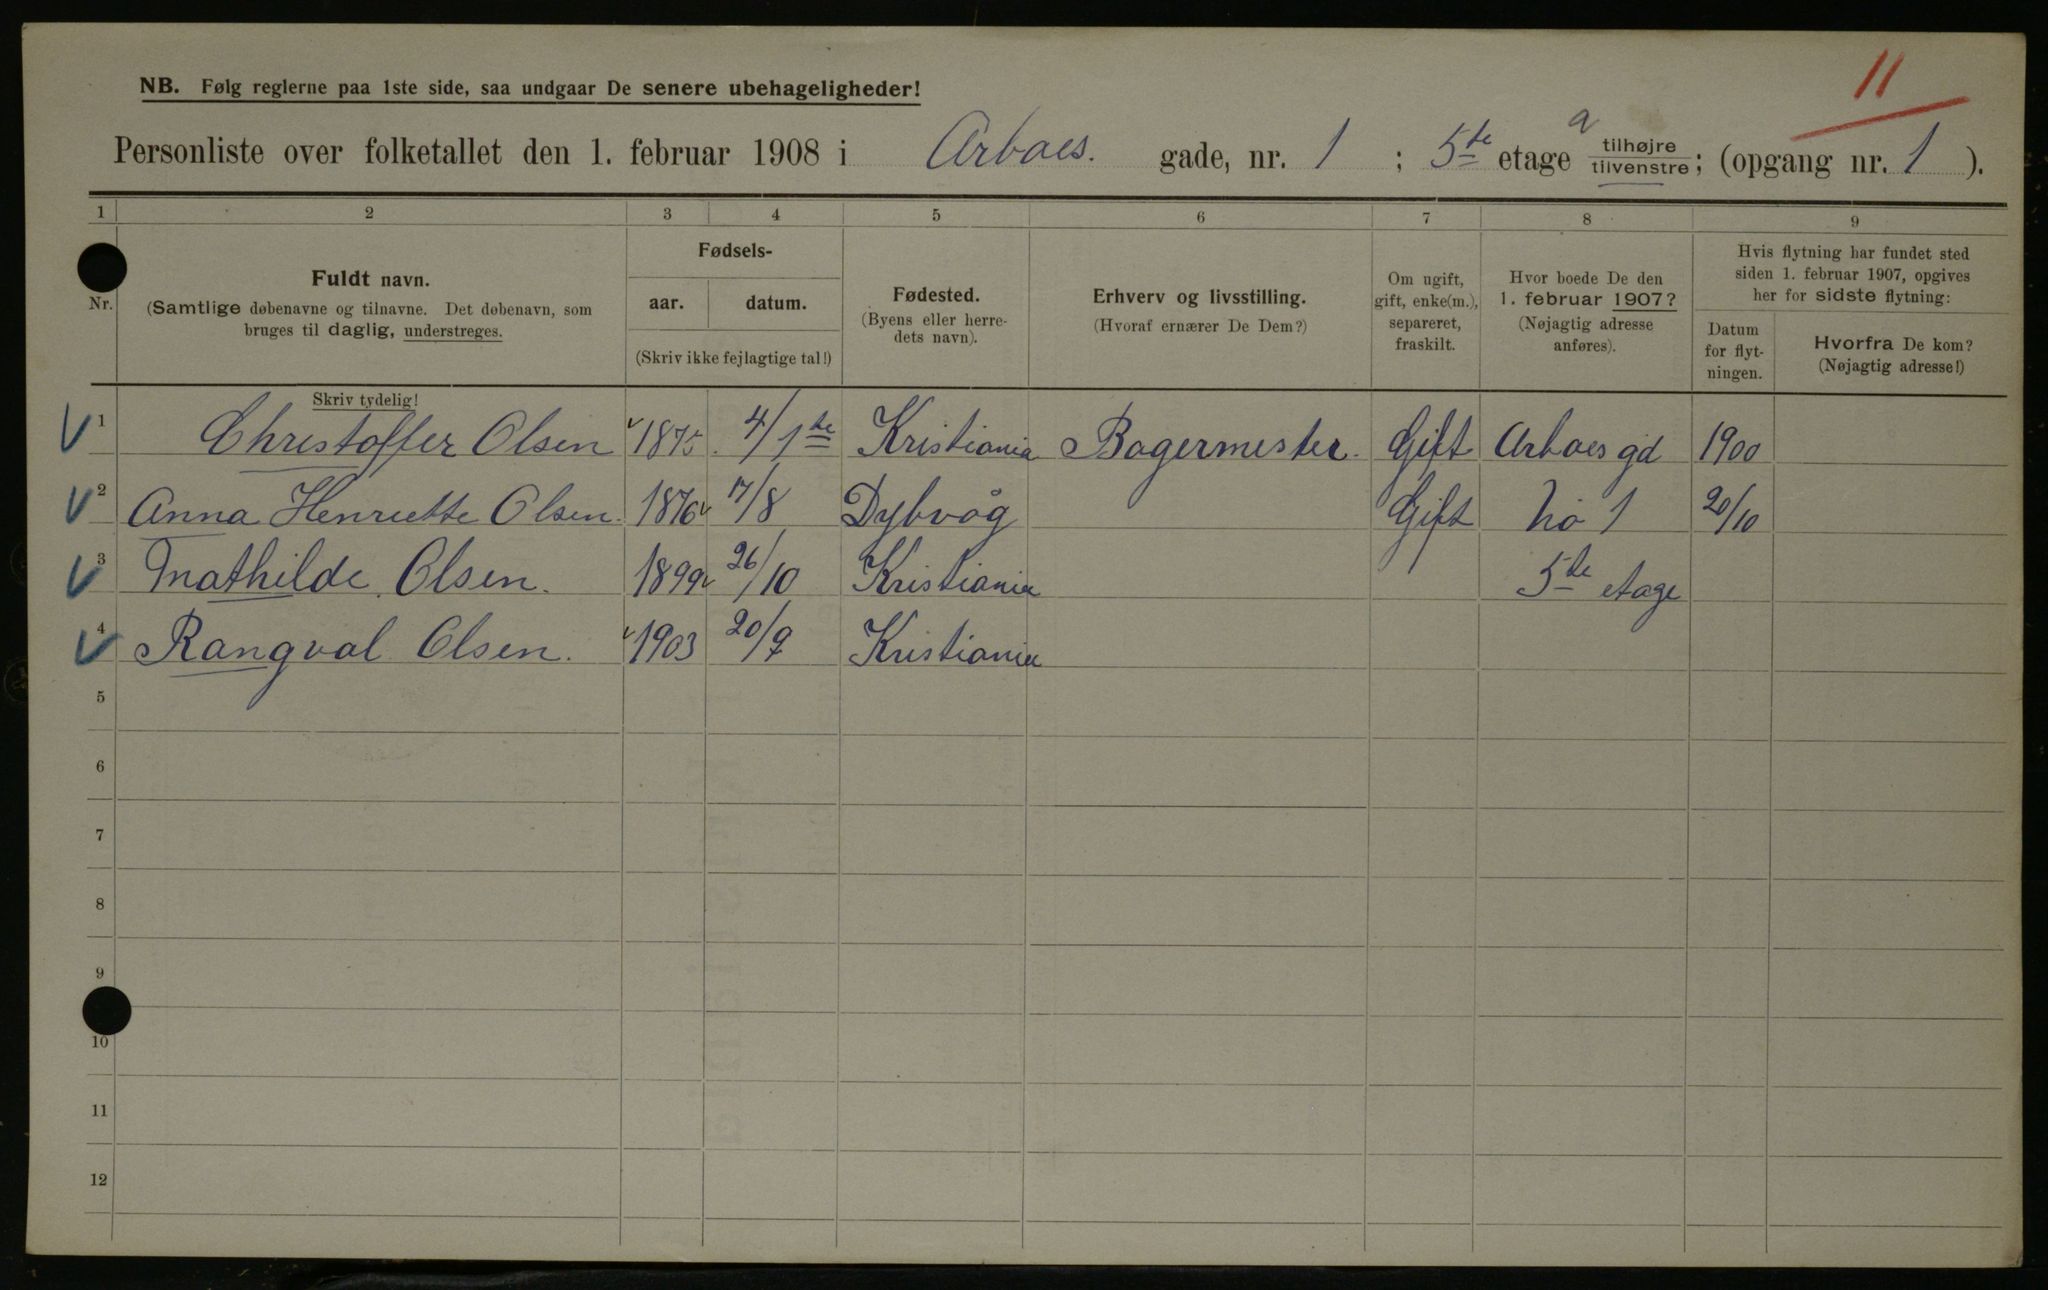 11
NB. Følg reglerne paa 1ste side, saa undgaar De senere ubehageligheder!
Personliste over folketallet den 1. februar 1908 i Arboes. gade, nr. 1 ; 5te etage a tilhøjre tilvenstre; (opgang nr. 1 ).
1 2 3 4 5 6 7 8 9
Nr.
Fuldt navn.
(Samtlige døbenavne og tilnavne. Det døbenavn, som
bruges til daglig, understreges.
Fødsels-
aar. datum.
(Skriv ikke fejlagtige tal!)
Fødested.
(Byens eller herre-
dets navn).
Erhverv og livsstilling.
(Hvoraf ernærer De Dem?)
Om ugift,
gift, enke(m.),
separeret,
fraskilt.
Hvor boede De den
1. februar 1907?
(Nøjagtig adresse
anføres).
Hvis flytning har fundet sted
siden 1. februar 1907, opgives
her for sidste flytning:
Datum
for flyt-
ningen.
Hvorfra De kom?
(Nøjagtig adresse!)
Skriv tydelig!
1 Christoffer Olsen 1875. 4/1te Kristiania Bagermester. Gift Arboes gd 1900
2 Anna Henriette Olsen. 1876 17/8 Dybvåg Gift No 1 20/10
3 Mathilde Olsen. 1899 26/10 Kristiania 5te etage
4 Rangval Olsen. 1903 20/9 Kristiania
5
6
7
8
9
10
11
12